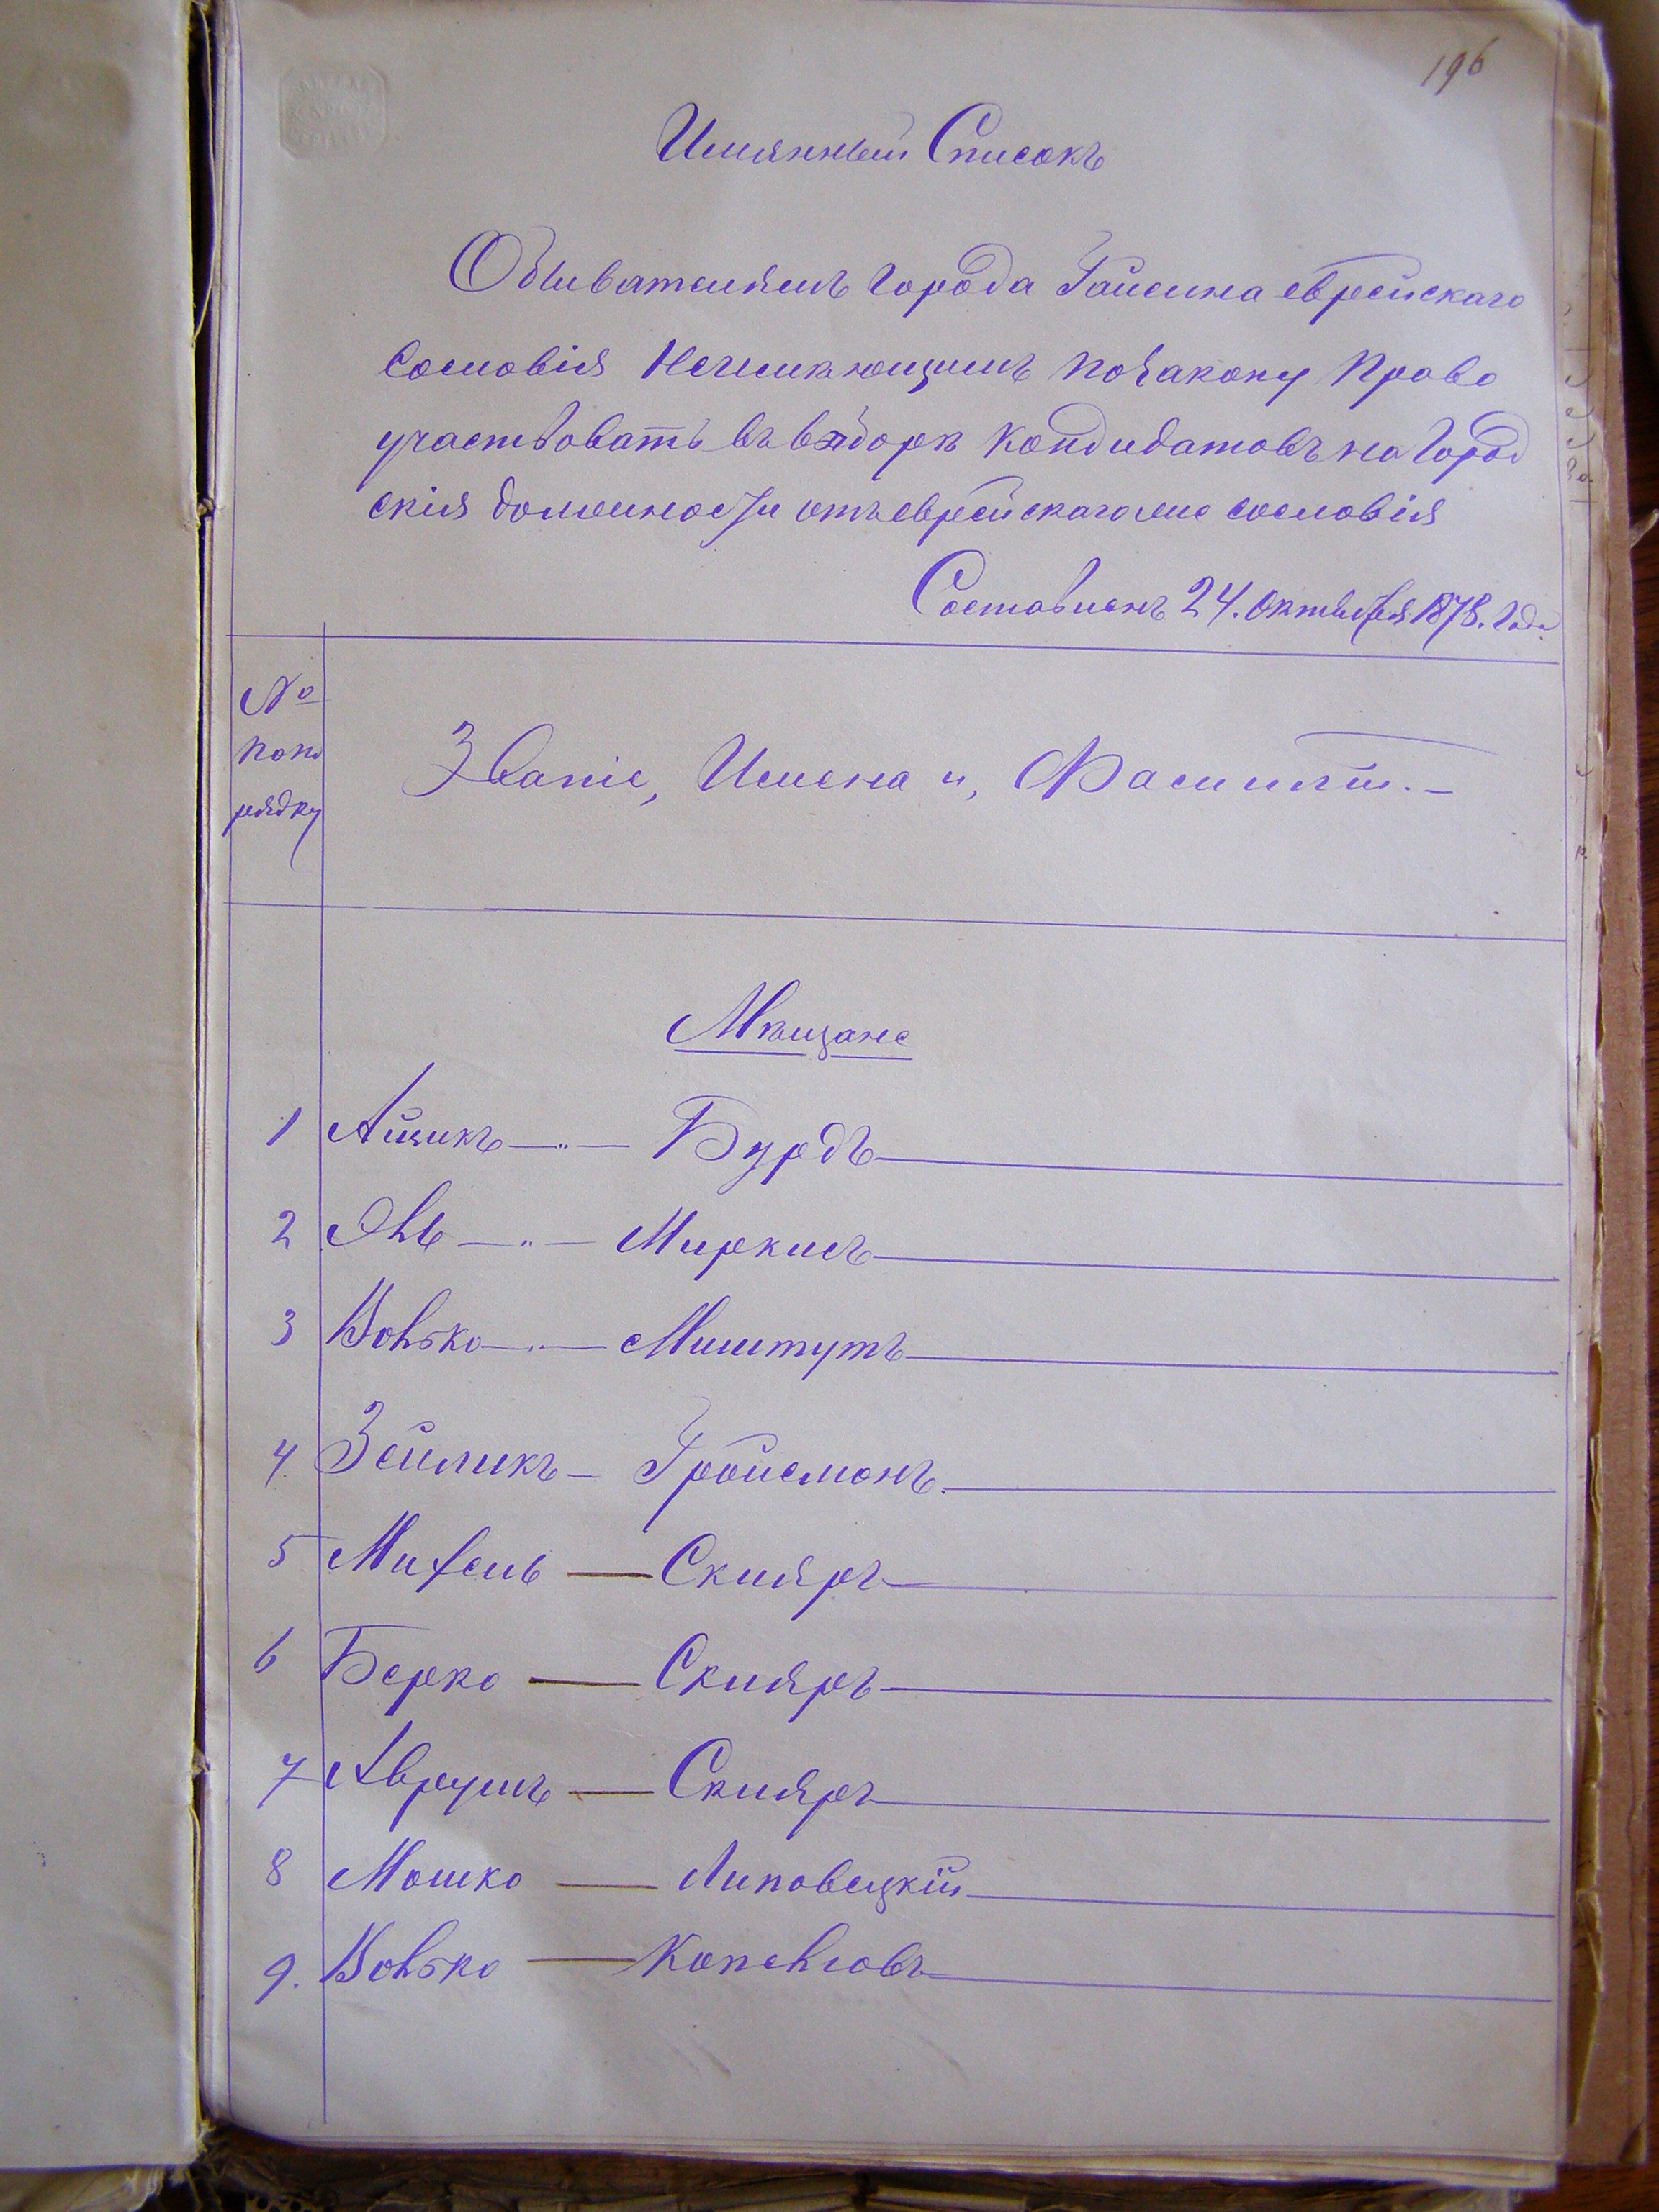 196
Имянный Списокъ
Обывателямъ города Гайсина еврейскаго
сословія Неимеющимъ по закону Право
участвовать въ выборѣ кондидатовъ на Город
скія должности отъ еврейскаго же сословія
Составленъ 24. октября 1878. Года
№
по по
рядку
Званіе, Имена и, Фамиліи. —
Мѣщане
1 Айцикъ — „ — Бурдъ
2 Янь — „ — Миркисъ
3 Волько — „ — Миштутъ
4 Зейликъ — Гройсмонъ.
5 Михель — Скляръ
6 Берко — Скляръ
7 Аврумъ — Скляръ
8 Мошко — Липовецкій
9. Волько — Копеловъ